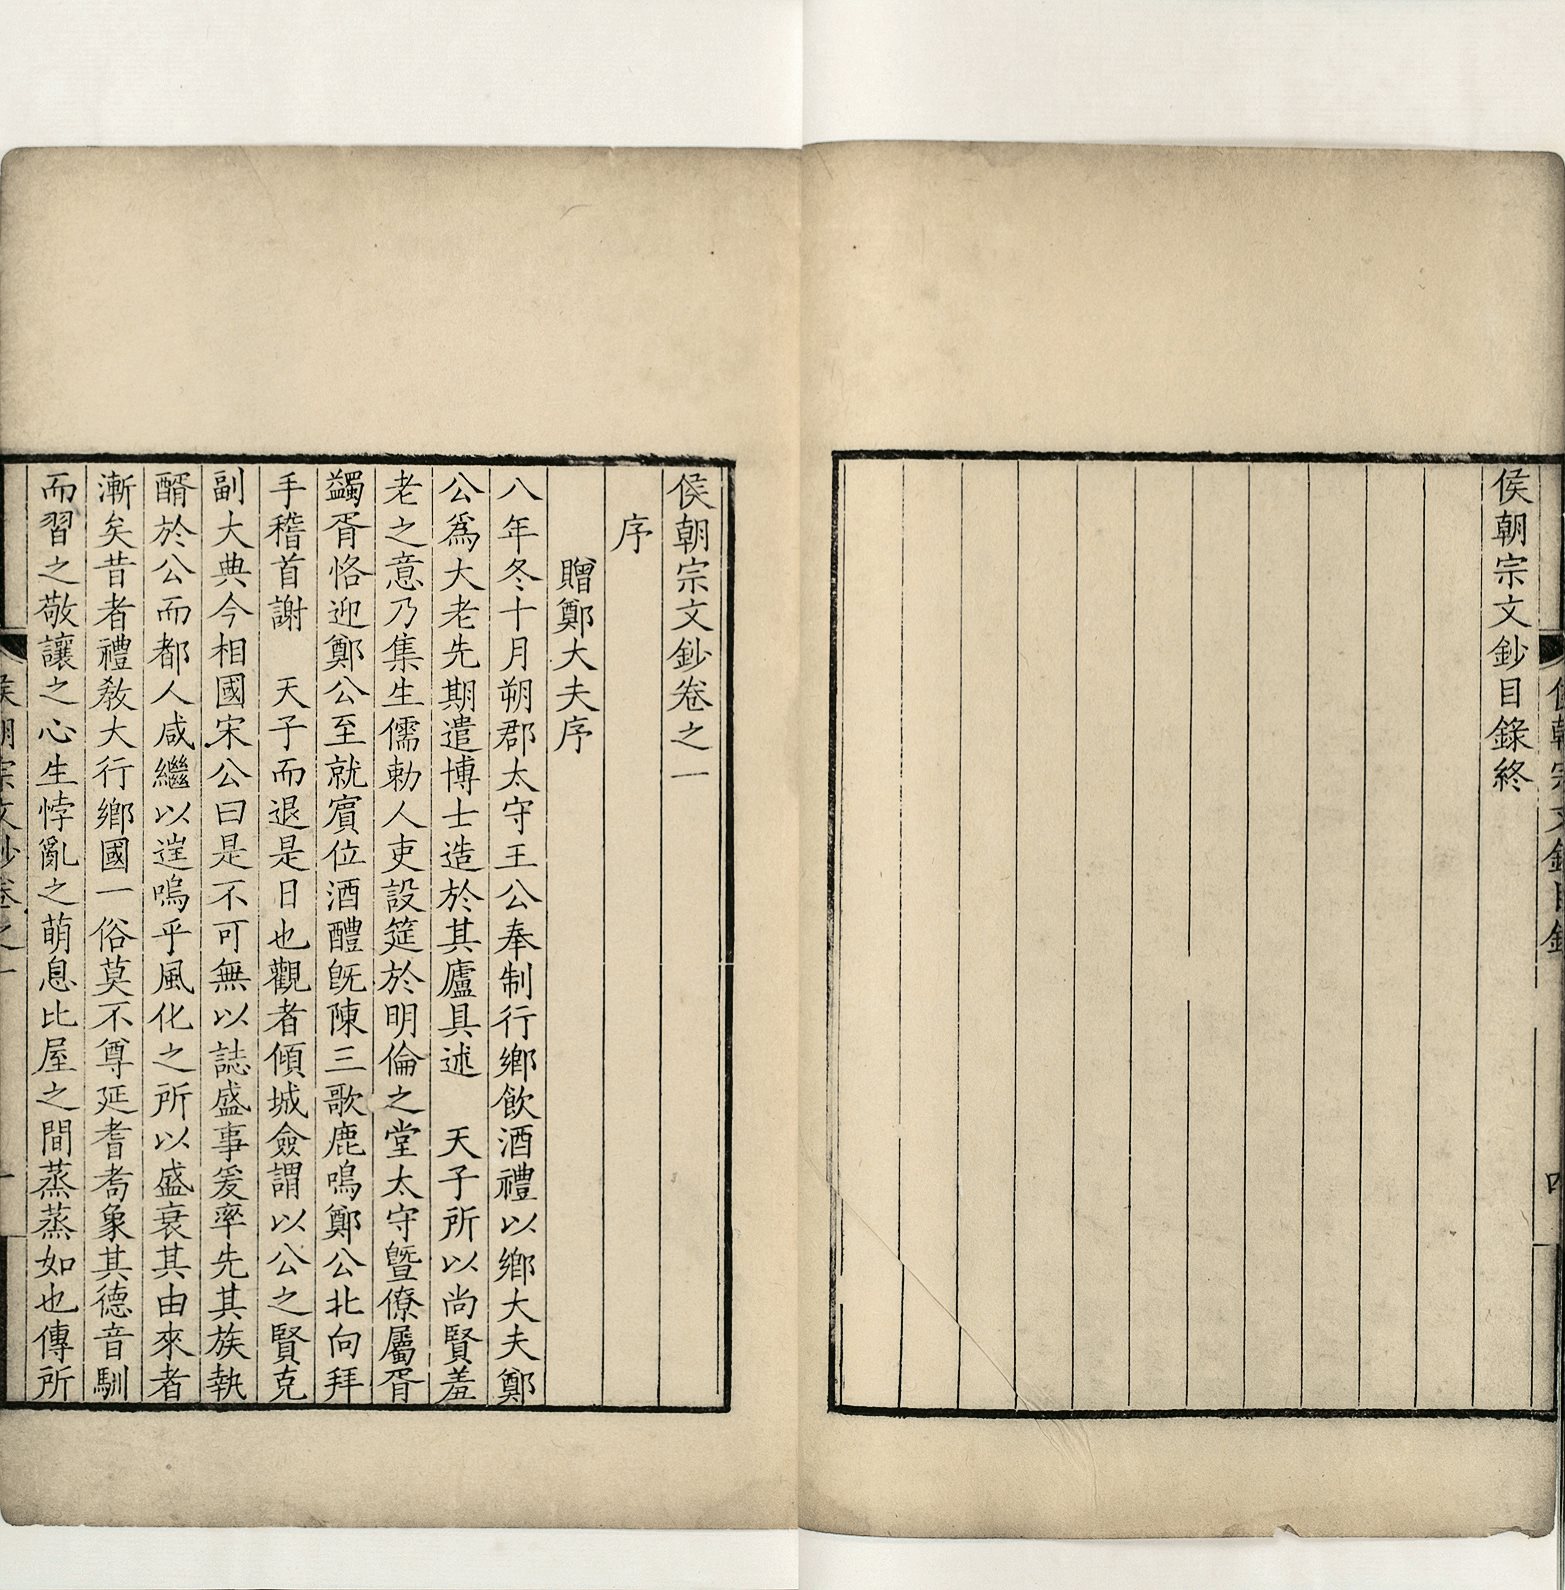 侯朝宗文鈔目錄終
侯朝宗文鈔目錄
四
侯朝宗文鈔卷之一
序
贈鄭大夫序
八年冬十月朔郡太守王公奉制行鄉飲酒禮以鄉大夫鄭
公爲大老先期遣博士造於其廬具述　天子所以尚賢羞
老之意乃集生儒勅人吏設筵於明倫之堂太守曁僚屬胥
蠲胥恪迎鄭公至就賔位酒醴旣陳三歌鹿鳴鄭公北向拜
手稽首謝　天子而退是日也觀者傾城僉謂以公之賢克
副大典今相國宋公曰是不可無以誌盛事爰率先其族執
醑於公而都人咸繼以逞嗚乎風化之所以盛衰其由來者
漸矣昔者禮敎大行鄉國一俗莫不尊延耆耇象其德音馴
而習之敬讓之心生悖亂之萌息比屋之間蒸蒸如也傳所
侯朝宗文鈔卷之一
一